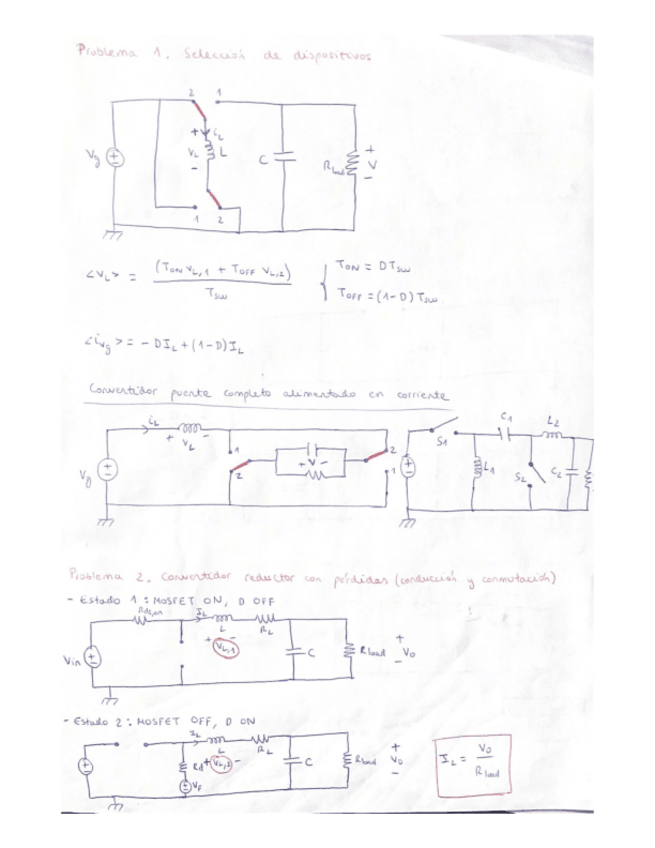 Problema 1. Selección de dispositivos
2 1
+ iL
Vg VL L C Rload + V -
-
1 2
<VL> = (TON VL,1 + TOFF VL,2) / TSW { TON = DTSW
TOFF = (1-D) TSW
<iVg> = - DIL + (1-D) IL
Convertidor puente completo alimentado en corriente
iL + VL - C1 L2
1 2 S1
Vg 2 + V - 1 L1 S2 C2
Problema 2. Convertidor reductor con pérdidas (conducción y conmutación)
- Estado 1: MOSFET ON, D OFF
Rds,on IL L RL
+ VL,1 -
Vin C Rload + Vo -
- Estado 2: MOSFET OFF, D ON
IL L RL
Rd + VL,2 - C Rload + Vo -
VF
IL = Vo / Rload